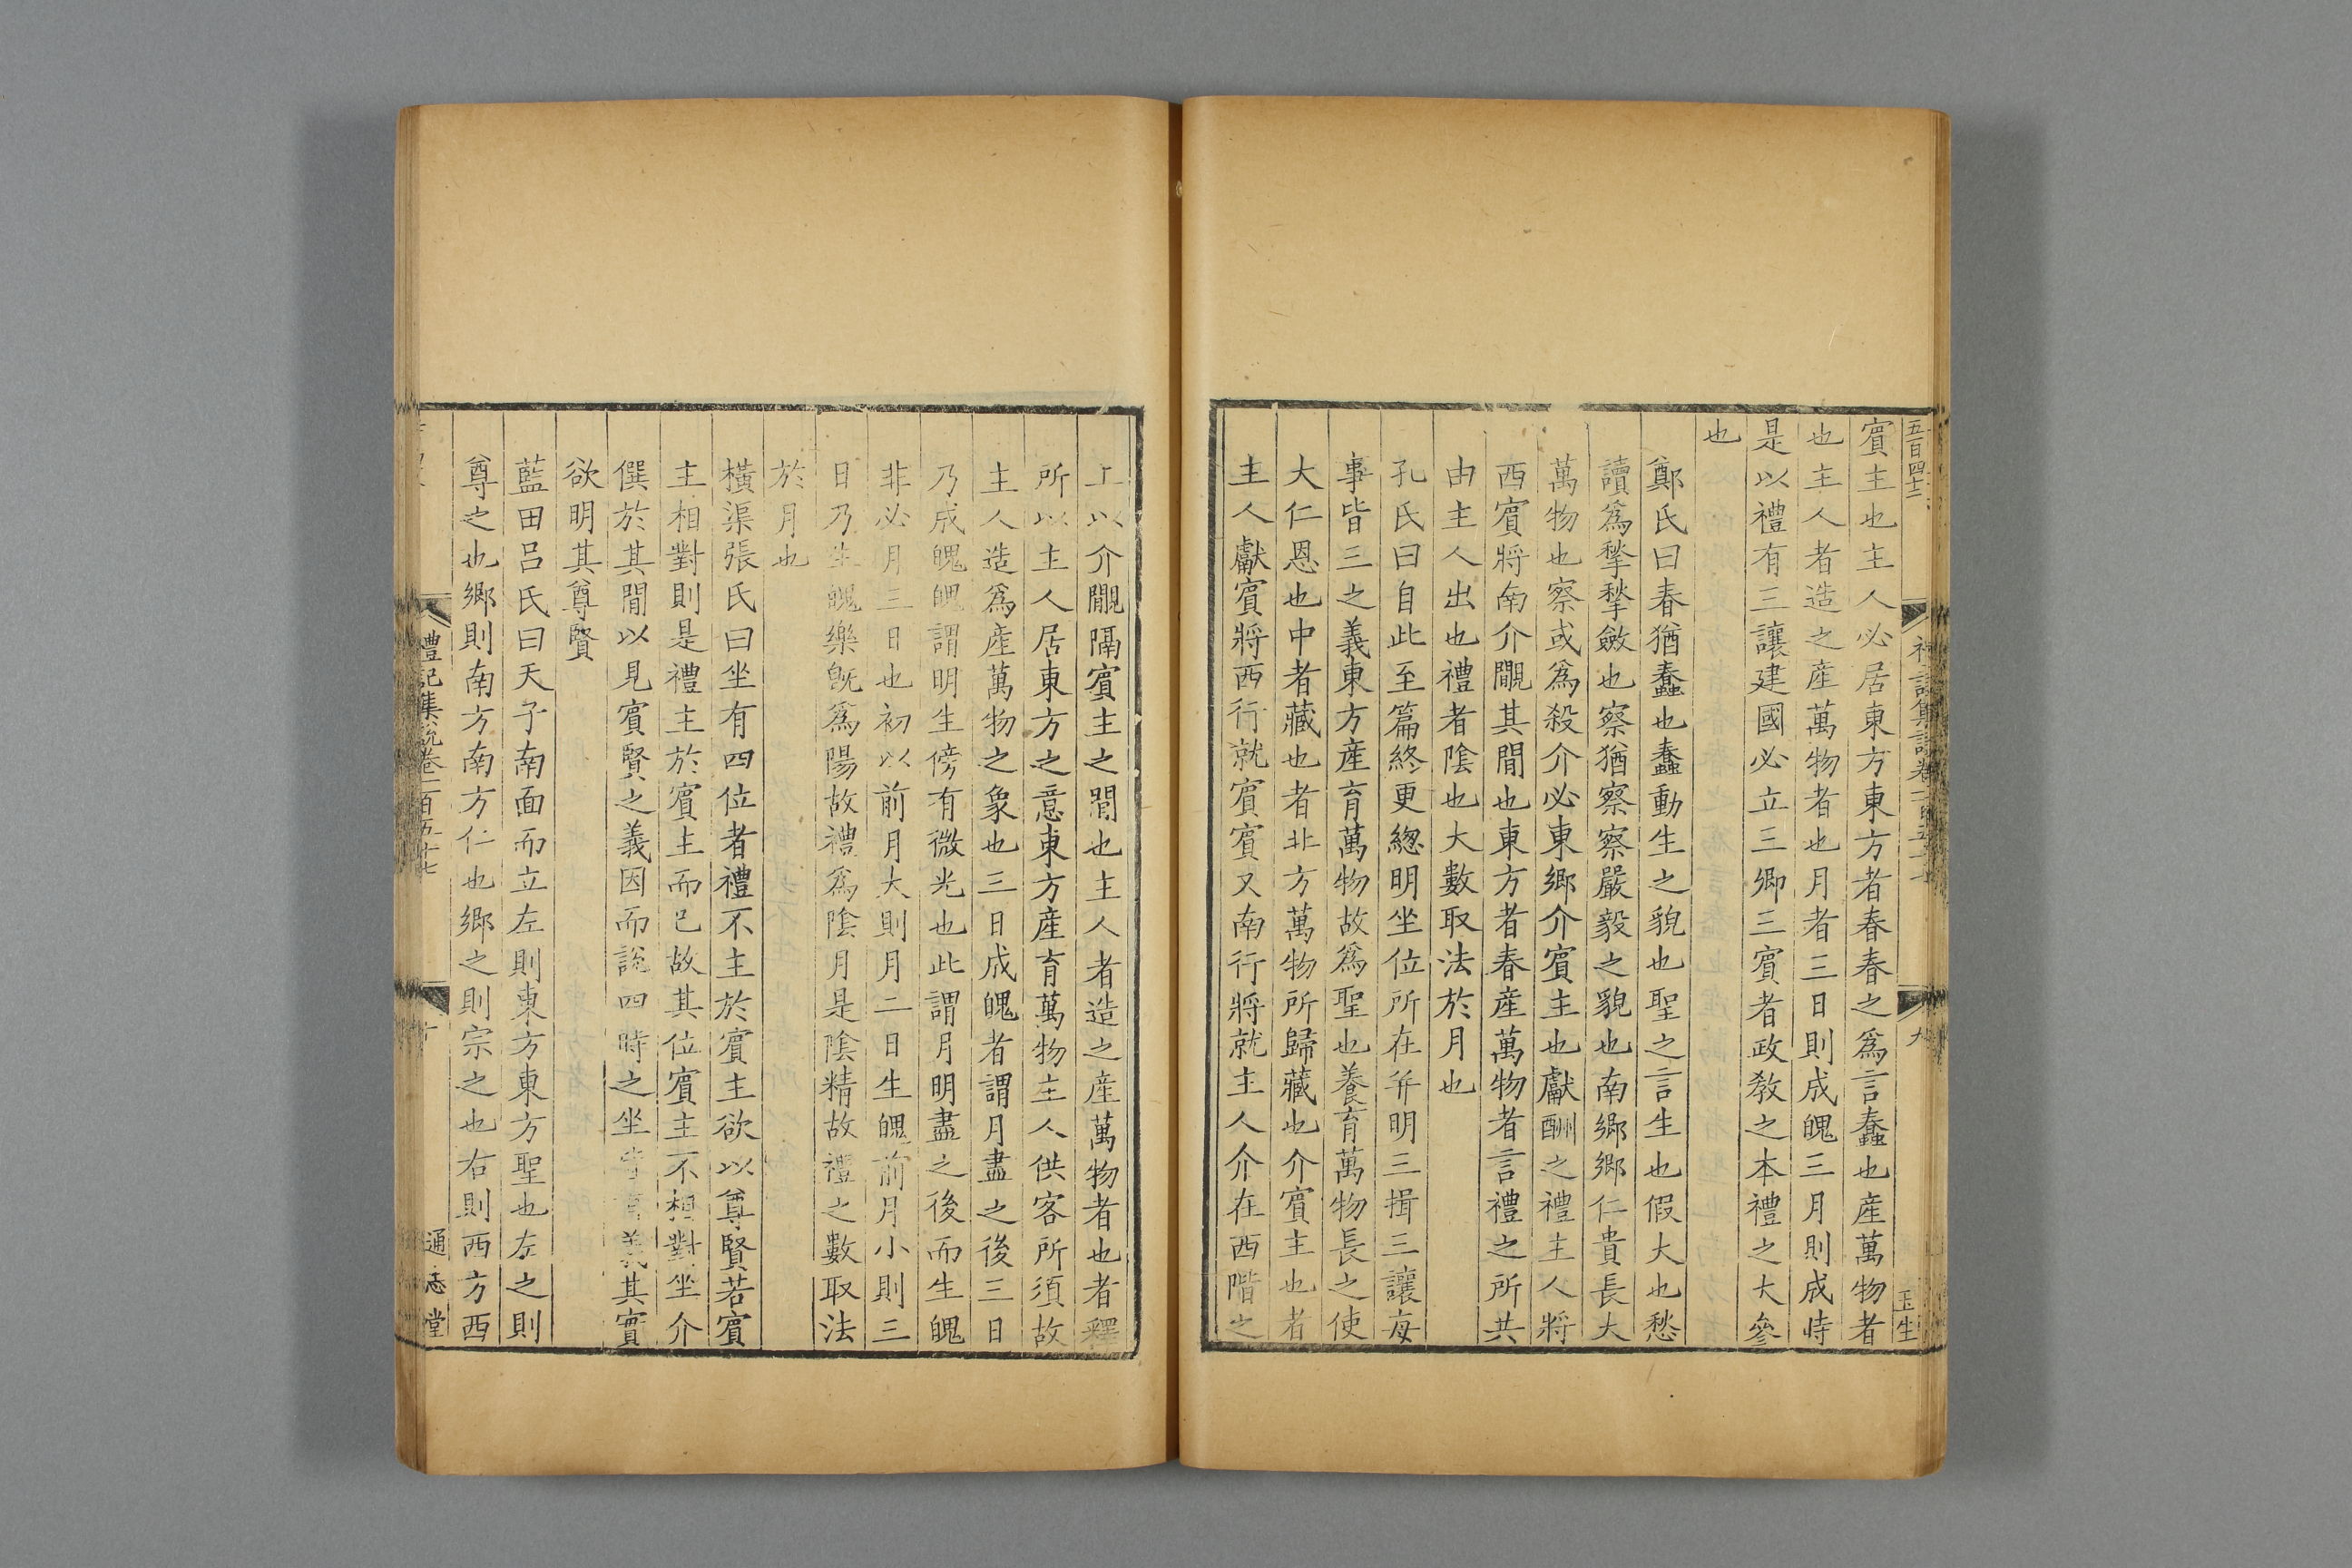 五百四十二
禮記集說卷一百五十七
九
玉生
賓主也主人必居東方東方者春春之爲言蠢也產萬物者
也主人者造之產萬物者也月者三日則成魄三月則成時
是以禮有三讓建國必立三卿三賓者政敎之本禮之大參
也
鄭氏曰春猶蠢也蠢動生之貌也聖之言生也假大也愁
讀爲揫揫斂也察猶察察嚴毅之貌也南鄉鄉仁貴長大
萬物也察或爲殺介必東鄉介賓主也獻酬之禮主人將
西賓將南介覸其間也東方者春產萬物者言禮之所共
由主人出也禮者陰也大數取法於月也
孔氏曰自此至篇終更緫明坐位所在并明三揖三讓每
事皆三之義東方產育萬物故爲聖也養育萬物長之使
大仁恩也中者藏也者北方萬物所歸藏也介賓主也者
主人獻賓將西行就賓賓又南行將就主人介在西階之
上以介覸隔賓主之間也主人者造之產萬物者也者釋
所以主人居東方之意東方產育萬物主人供客所須故
主人造爲產萬物之象也三日成魄者謂月盡之後三日
乃成魄魄謂明生傍有微光也此謂月明盡之後而生魄
非必月三日也初以前月大則月二日生魄前月小則三
日乃生魄樂旣爲陽故禮爲陰月是陰精故禮之數取法
於月也
橫渠張氏曰坐有四位者禮不主於賓主欲以尊賢若賓
主相對則是禮主於賓主而已故其位賓主不相對坐介
僎於其間以見賓賢之義因而說四時之坐皆有義其實
欲明其尊賢
藍田呂氏曰天子南面而立左則東方東方聖也左之則
尊之也鄉則南方南方仁也鄉之則宗之也右則西方西
禮記集說卷一百五十七
十
通志堂